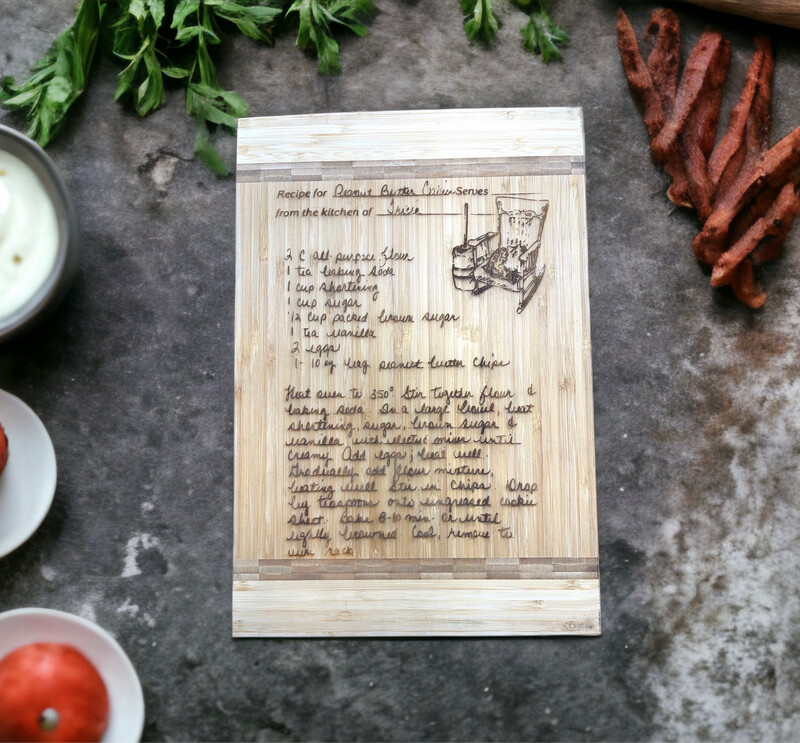 Recipe for Peanut Butter Serves
from the kitchen of Tricia
2 C all purpose flour
1 tea baking soda
1 cup shortening
1 cup sugar
1/2 cup packed brown sugar
1 tea vanilla
2 eggs
1- 10 oz bag peanut butter chips
Heat oven to 350° Stir together flour &
baking soda In a large bowl, beat
shortening, sugar, brown sugar &
vanilla with electric mixer until
creamy Add eggs; beat well.
Gradually add flour mixture,
beating well Stir in chips Drop
by teaspoons onto ungreased cookie
sheet. Bake 8-10 min or until
lightly browned Cool, remove to
wire rack